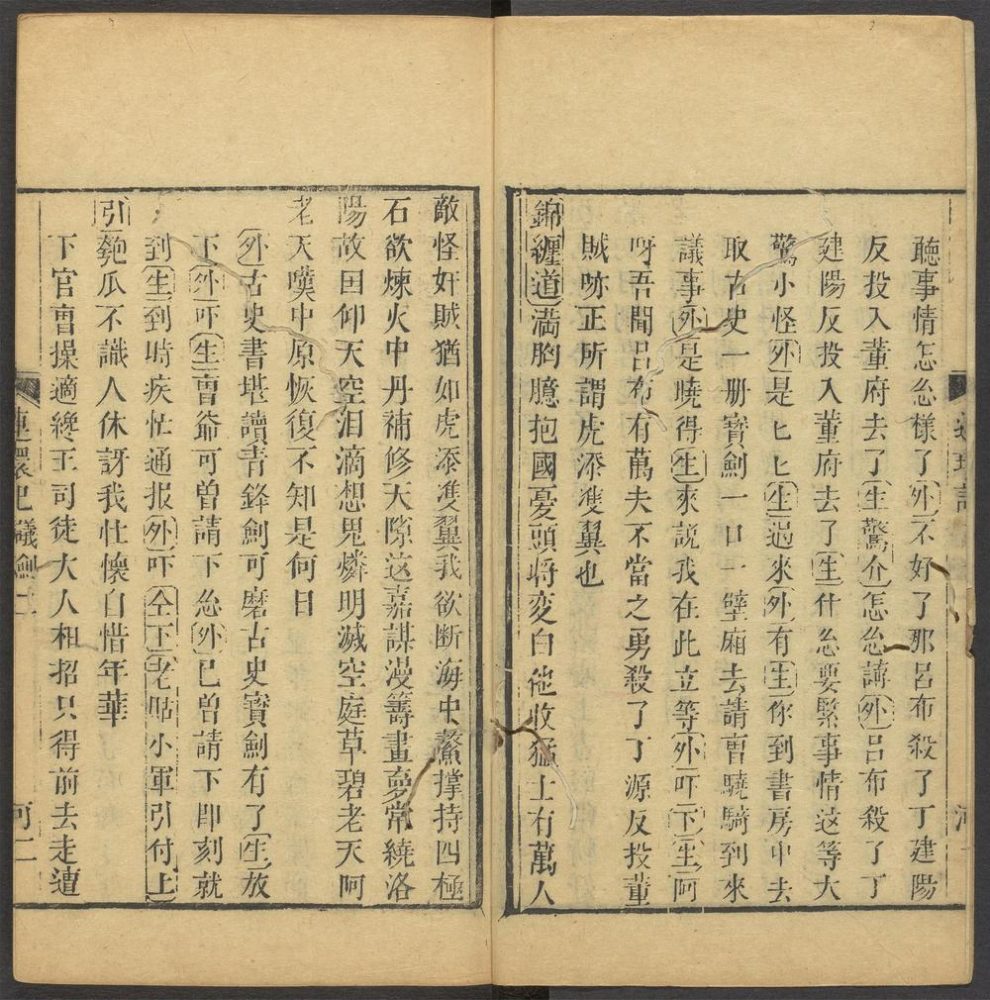 聽事情怎怂樣了外不好了那呂布殺了丁建陽
反投入董府去了生驚介怎怂講外呂布殺了丁
建陽反投入董府去了生什怂要緊事情这等大
驚小怪外是匕匕生過來外有生你到書房中去
取古史一册寶劍一口一壁廂去請曹驍騎到來
議事外是曉得生來説我在此立等外吓下生阿
呀吾聞呂布有萬夫不當之勇殺了丁源反投董
賊哧正所謂虎添雙翼也
錦纏道滿胸臆抱國憂頭將变白他收猛士有萬人
敵怪奸賊猶如虎添雙翼我欲断海中鰲撑持四極
石欲煉火中丹補修天隙这嘉謀漫籌畫夢常繞洛
陽故国仰天空泪滴想鬼燐明滅空庭草碧老天阿
老天嘆中原恢復不知是何日
外古史書堪讀青鋒劍可磨古史寳劍有了生放
下外吓生曹爺可曽請下怂外已曽請下即刻就
到生到時疾忙通报外吓仝下老旦小軍引付上
引匏瓜不識人休訝我壮懷自惜年華
下官曹操適纔王司徒大人相招只得前去走遭
連環記
議劍二